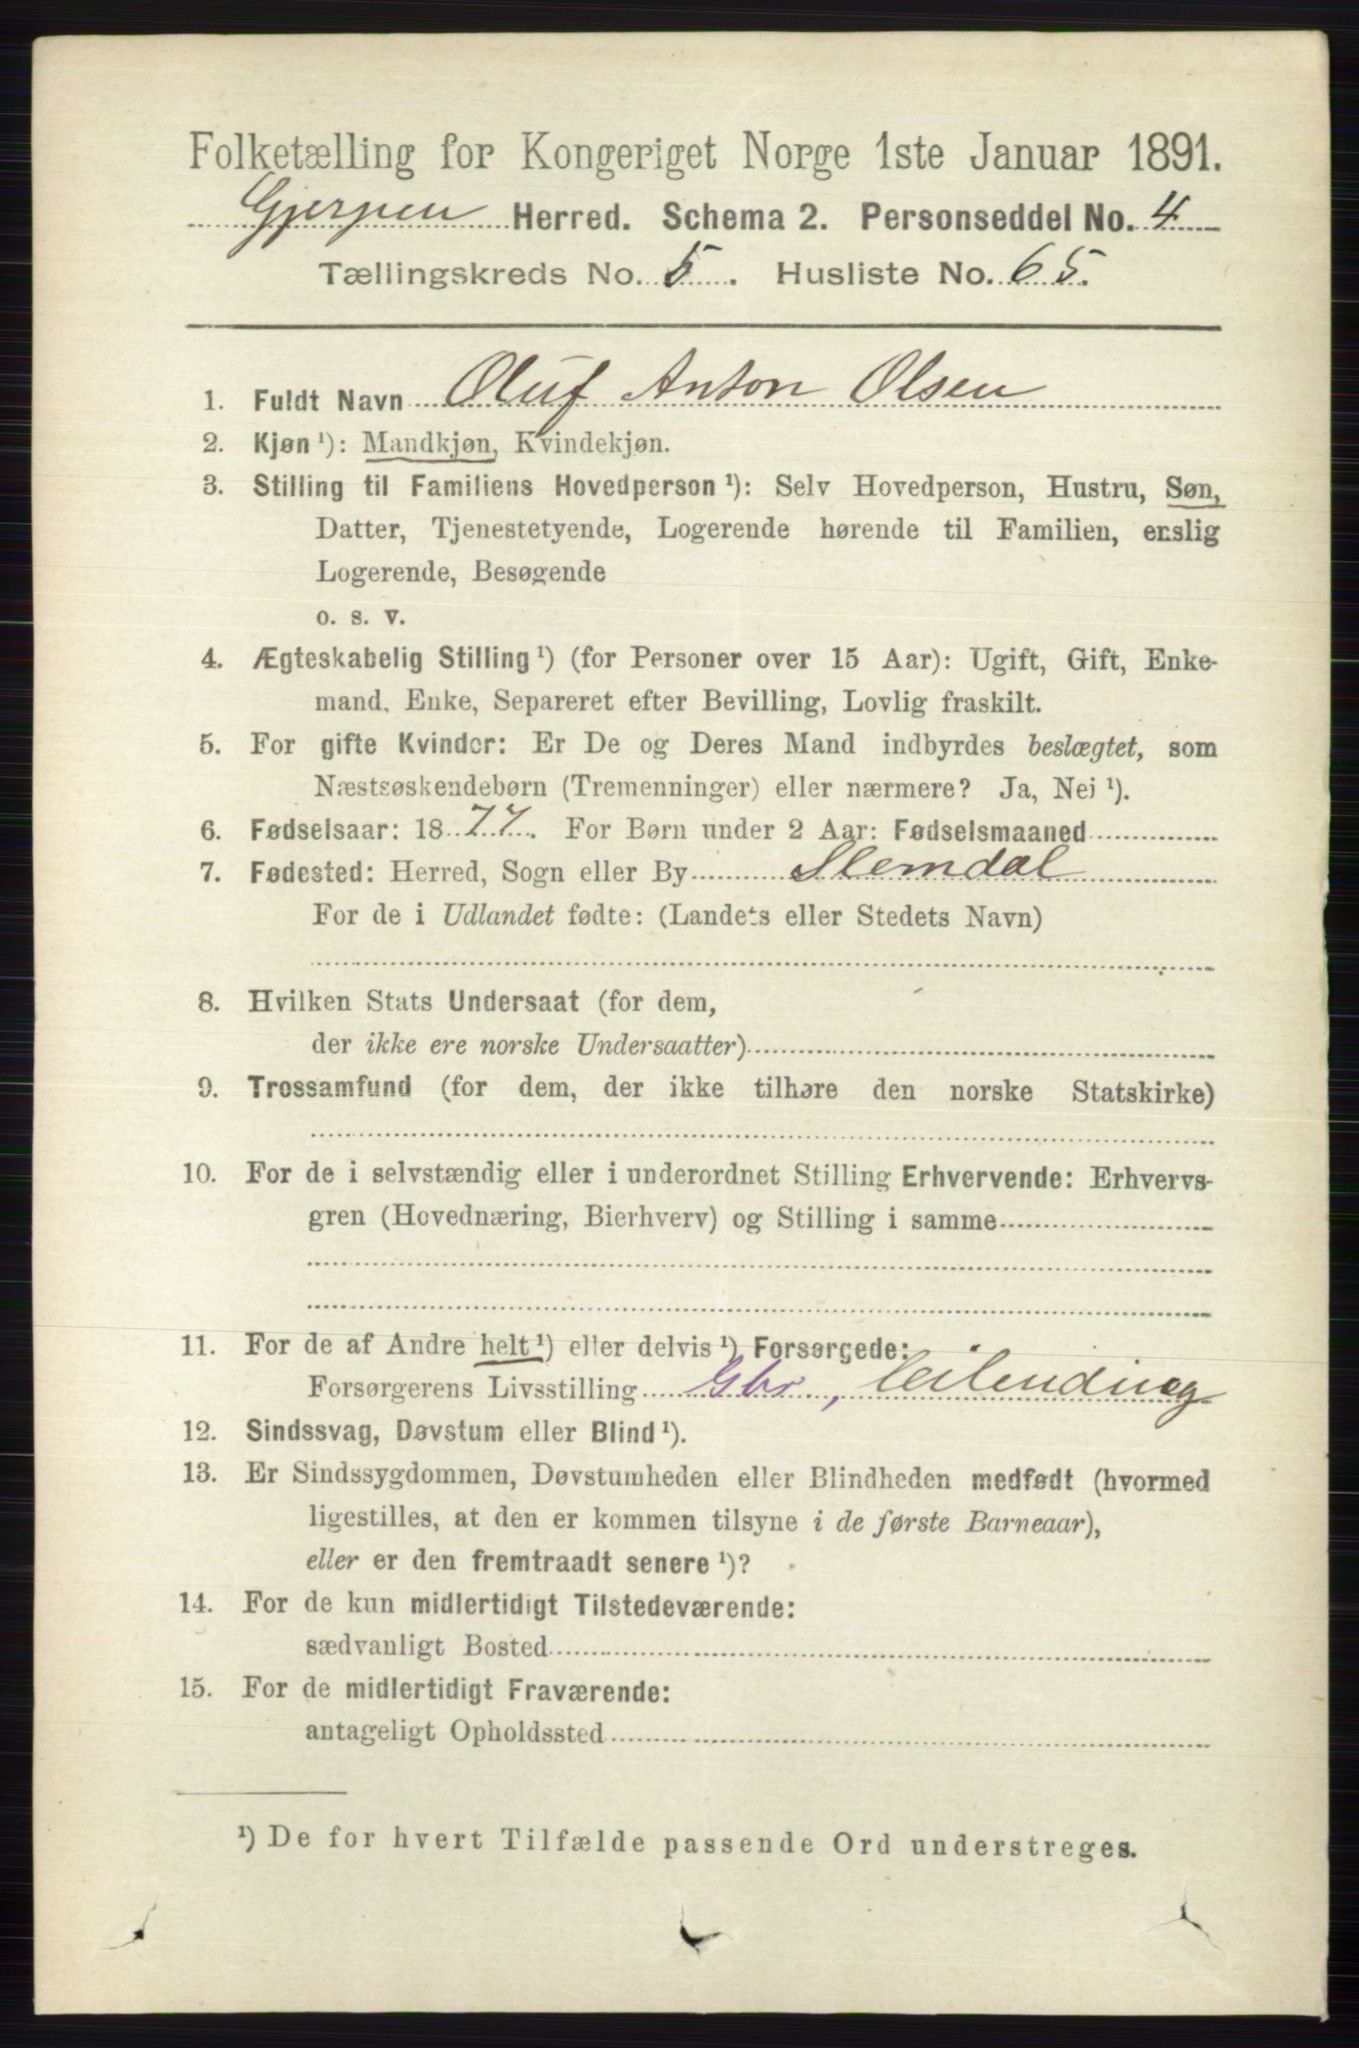 Folketælling for Kongeriget Norge 1ste Januar 1891.
Gjerpen Herred. Schema 2. Personseddel No. 4
Tællingskreds No. 5. Husliste No. 65.
1. Fuldt Navn Oluf Anton Olsen
2. Kjøn ¹): Mandkjøn, Kvindekjøn.
3. Stilling til Familiens Hovedperson ¹): Selv Hovedperson, Hustru, Søn,
Datter, Tjenestetyende, Logerende hørende til Familien, enslig
Logerende, Besøgende
o. s. v.
4. Ægteskabelig Stilling ¹) (for Personer over 15 Aar): Ugift, Gift, Enke-
mand, Enke, Separeret efter Bevilling, Lovlig fraskilt.
5. For gifte Kvinder: Er De og Deres Mand indbyrdes beslægtet, som
Næstsøskendebørn (Tremenninger) eller nærmere? Ja, Nei ¹).
6. Fødselsaar: 1877. For Børn under 2 Aar: Fødselsmaaned
7. Fødested: Herred, Sogn eller By Slemdal
For de i Udlandet fødte: (Landets eller Stedets Navn)
8. Hvilken Stats Undersaat (for dem,
der ikke ere norske Undersaatter)
9. Trossamfund (for dem, der ikke tilhøre den norske Statskirke)
10. For de i selvstændig eller i underordnet Stilling Erhvervende: Erhvervs-
gren (Hovednæring, Bierhverv) og Stilling i samme
11. For de af Andre helt ¹) eller delvis ¹) Forsørgede:
Forsørgerens Livsstilling Gbr, Leilending
12. Sindssvag, Døvstum eller Blind ¹).
13. Er Sindssygdommen, Døvstumheden eller Blindheden medfødt (hvormed
ligestilles, at den er kommen tilsyne i de første Barneaar),
eller er den fremtraadt senere ¹)?
14. For de kun midlertidigt Tilstedeværende:
sædvanligt Bosted
15. For de midlertidigt Fraværende:
antageligt Opholdssted
¹) De for hvert Tilfælde passende Ord understreges.